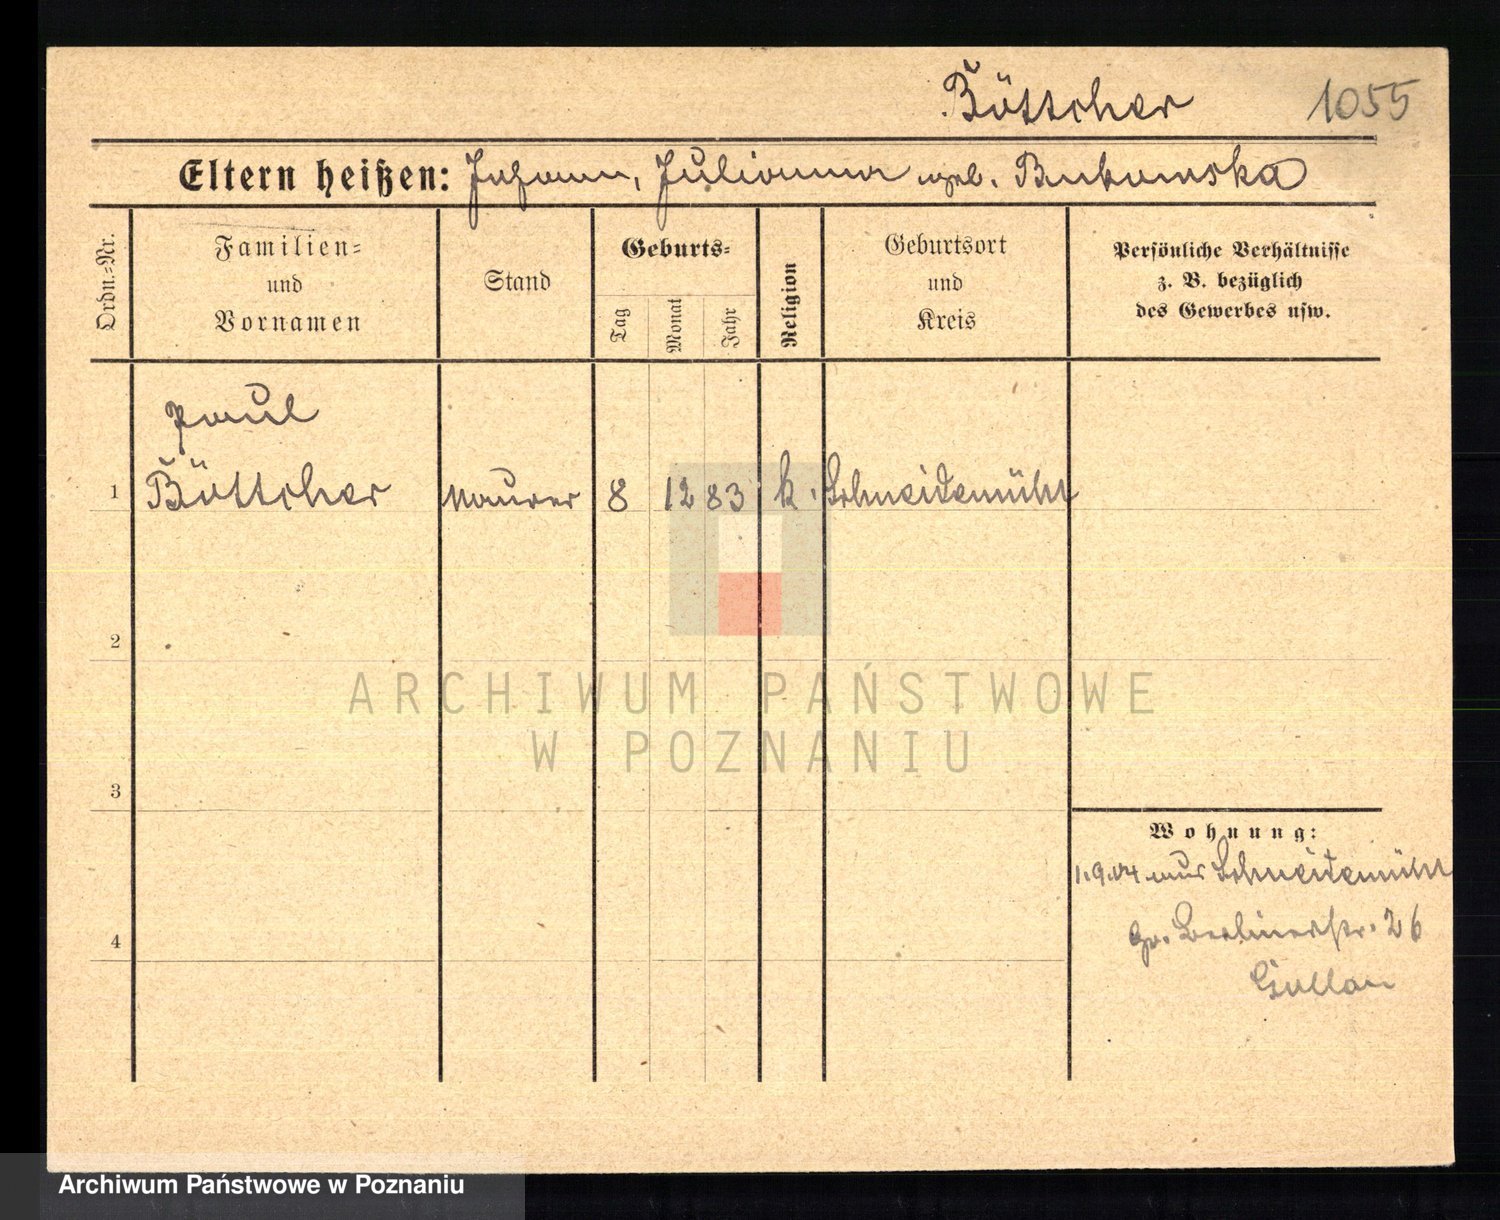 Böttcher 1055
Eltern heißen: Johann, Julianna geb. Bukowska
Ordn.=Nr.
Familien=
und
Vornamen
Stand
Geburts=
Tag
Monat
Jahr
Religion
Geburtsort
und
Kreis
Persönliche Verhältnisse
z. B. bezüglich
des Gewerbes usw.
Paul
1 Böttcher Maurer 8 12 83 k. Schneidemühl
2
3
4
Wohnung:
1.9.04 aus Schneidemühl
Gr. Berlinerstr. 26
ARCHIWUM PAŃSTWOWE
W POZNANIU
Archiwum Państwowe w Poznaniu